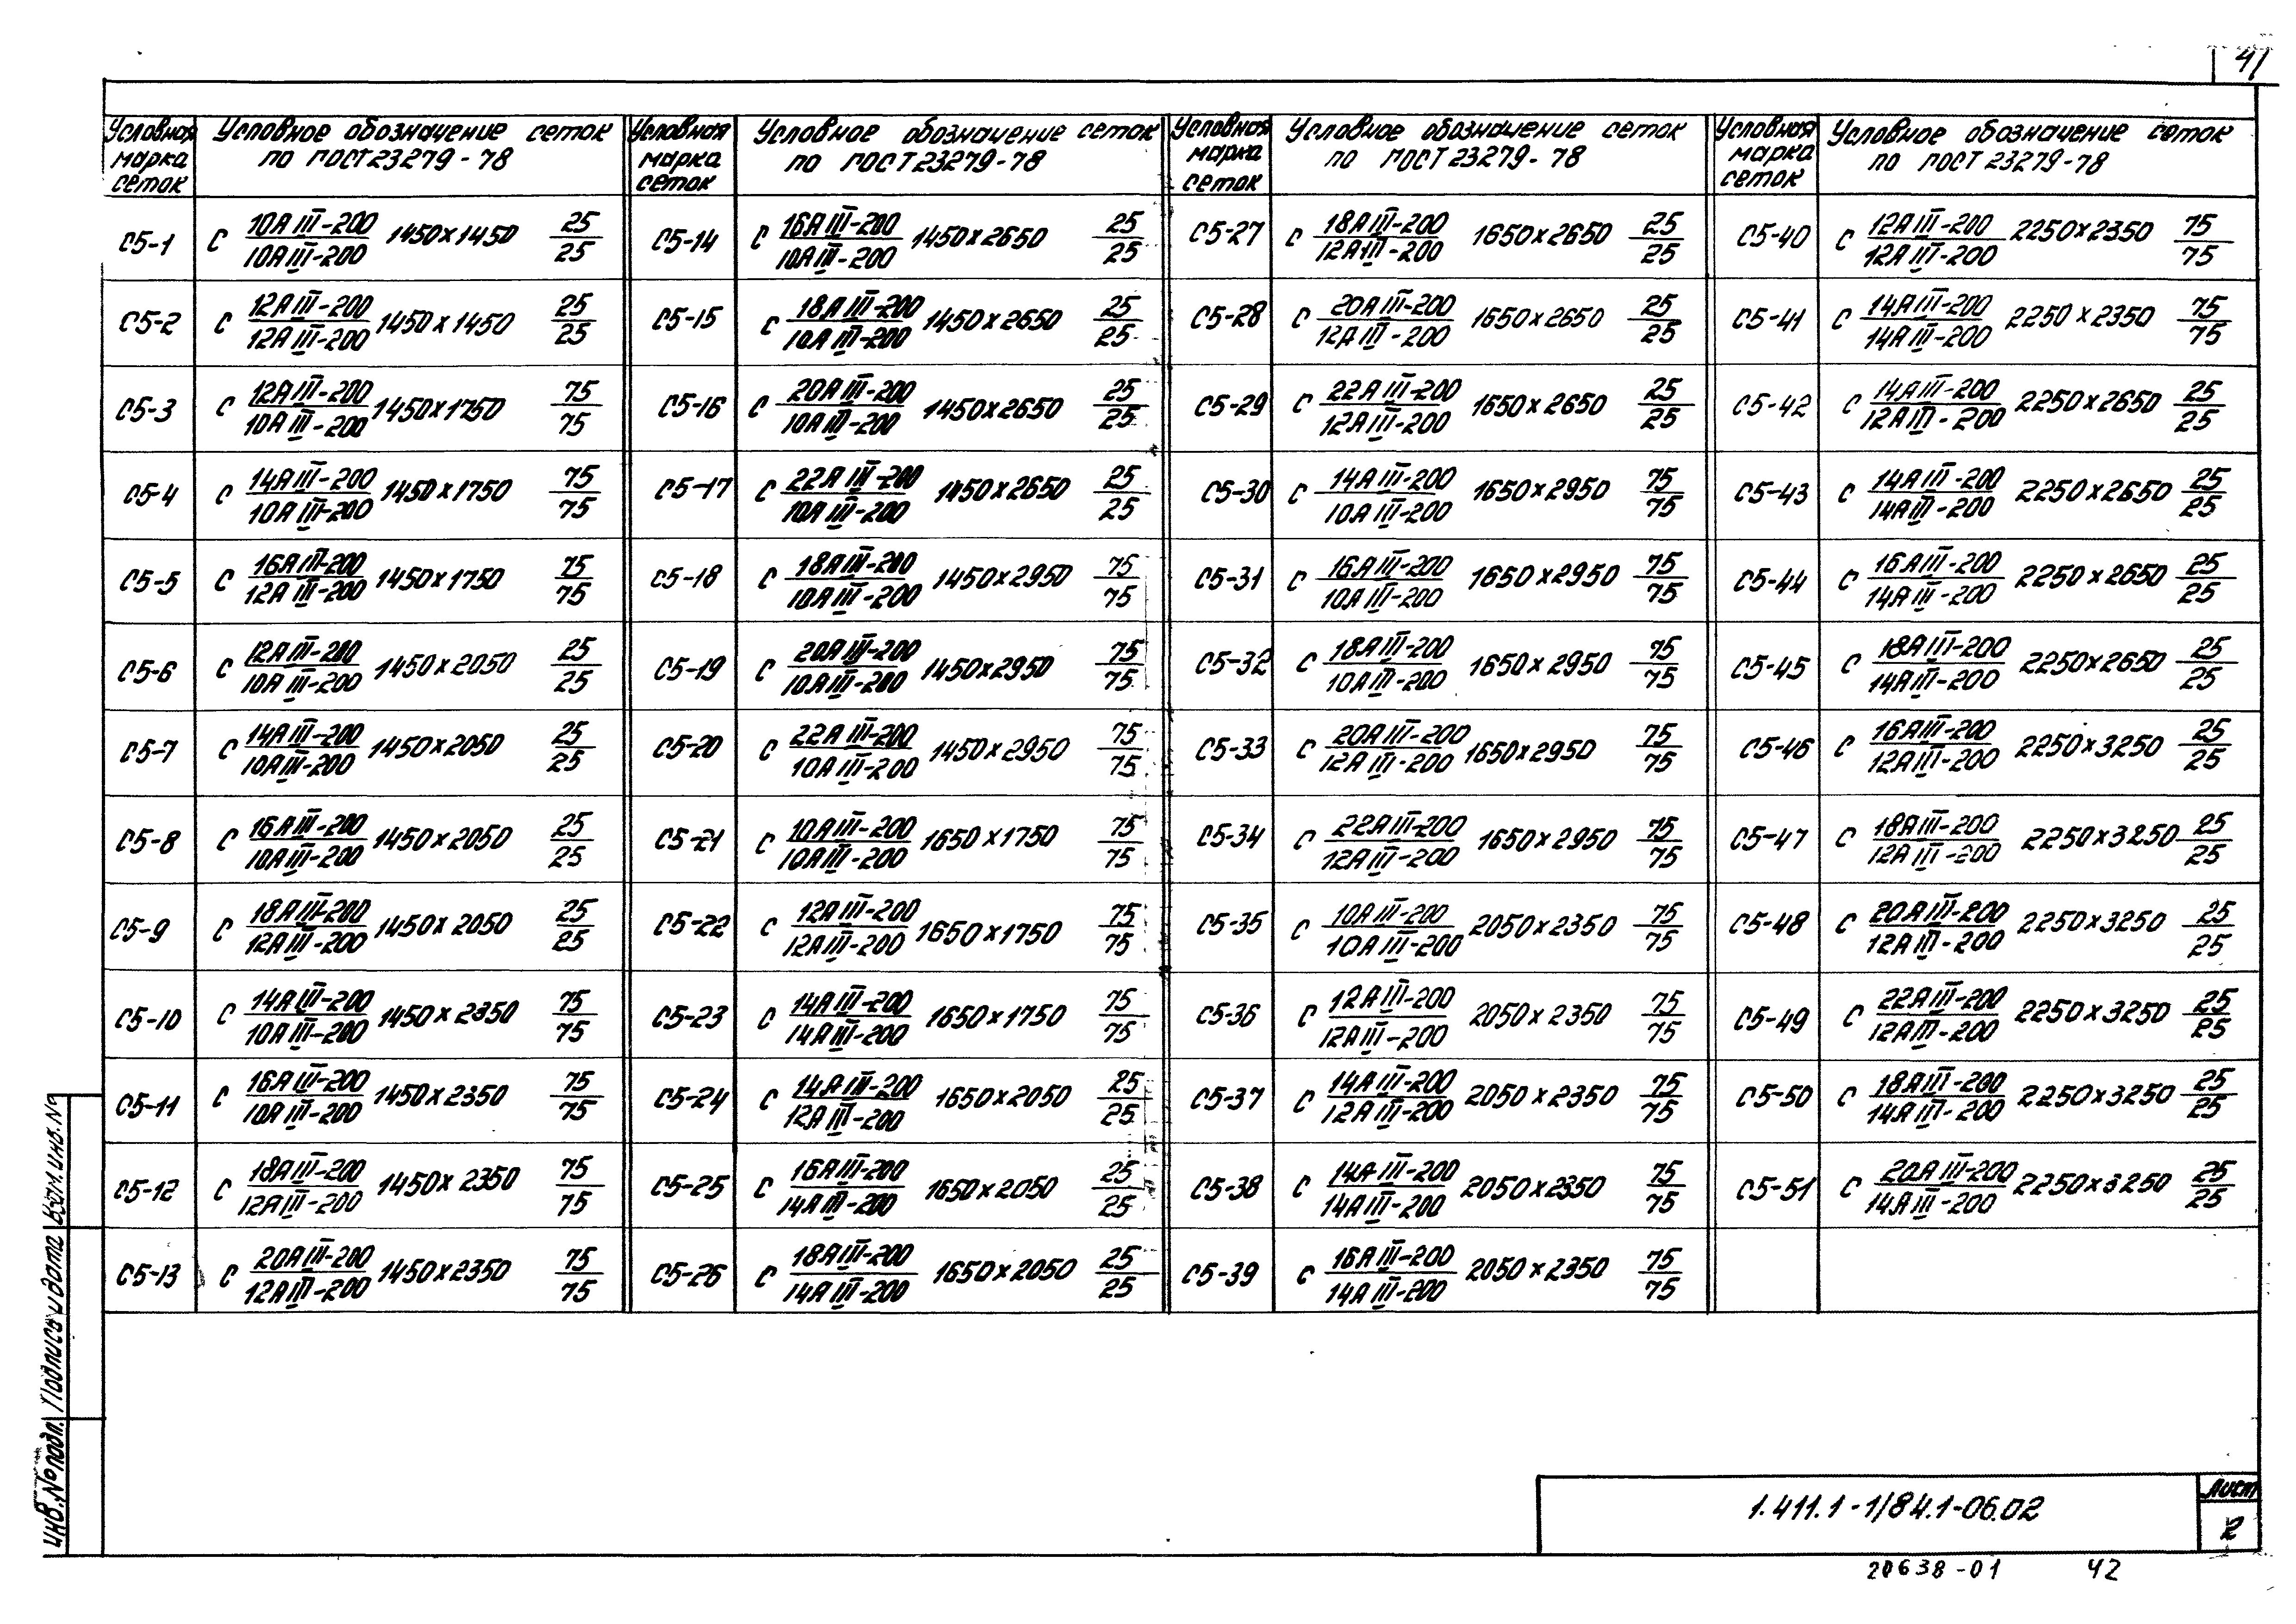 41
Условная марка сеток | Условное обозначение сеток по ГОСТ 23279-78 | Условная марка сеток | Условное обозначение сеток по ГОСТ 23279-78 | Условная марка сеток | Условное обозначение сеток по ГОСТ 23279-78 | Условная марка сеток | Условное обозначение сеток по ГОСТ 23279-78
С5-1 | С 10АIII-200/10АIII-200 1450×1450 25/25 | С5-14 | С 16АIII-200/10АIII-200 1450×2650 25/25 | С5-27 | С 18АIII-200/12АIII-200 1650×2650 25/25 | С5-40 | С 12АIII-200/12АIII-200 2250×2350 75/75
С5-2 | С 12АIII-200/12АIII-200 1450×1450 25/25 | С5-15 | С 18АIII-200/10АIII-200 1450×2650 25/25 | С5-28 | С 20АIII-200/12АIII-200 1650×2650 25/25 | С5-41 | С 14АIII-200/14АIII-200 2250×2350 75/75
С5-3 | С 12АIII-200/10АIII-200 1450×1750 75/75 | С5-16 | С 20АIII-200/10АIII-200 1450×2650 25/25 | С5-29 | С 22АIII-200/12АIII-200 1650×2650 25/25 | С5-42 | С 14АIII-200/12АIII-200 2250×2650 25/25
С5-4 | С 14АIII-200/10АIII-200 1450×1750 75/75 | С5-17 | С 22АIII-200/10АIII-200 1450×2650 25/25 | С5-30 | С 14АIII-200/10АIII-200 1650×2950 75/75 | С5-43 | С 14АIII-200/14АIII-200 2250×2650 25/25
С5-5 | С 16АIII-200/12АIII-200 1450×1750 75/75 | С5-18 | С 18АIII-200/10АIII-200 1450×2950 75/75 | С5-31 | С 16АIII-200/10АIII-200 1650×2950 75/75 | С5-44 | С 16АIII-200/14АIII-200 2250×2650 25/25
С5-6 | С 12АIII-200/10АIII-200 1450×2050 25/25 | С5-19 | С 20АIII-200/10АIII-200 1450×2950 75/75 | С5-32 | С 18АIII-200/10АIII-200 1650×2950 75/75 | С5-45 | С 18АIII-200/14АIII-200 2250×2650 25/25
С5-7 | С 14АIII-200/10АIII-200 1450×2050 25/25 | С5-20 | С 22АIII-200/10АIII-200 1450×2950 75/75 | С5-33 | С 20АIII-200/12АIII-200 1650×2950 75/75 | С5-46 | С 16АIII-200/12АIII-200 2250×3250 25/25
С5-8 | С 16АIII-200/10АIII-200 1450×2050 25/25 | С5-21 | С 10АIII-200/10АIII-200 1650×1750 75/75 | С5-34 | С 22АIII-200/12АIII-200 1650×2950 75/75 | С5-47 | С 18АIII-200/12АIII-200 2250×3250 25/25
С5-9 | С 18АIII-200/12АIII-200 1450×2050 25/25 | С5-22 | С 12АIII-200/12АIII-200 1650×1750 75/75 | С5-35 | С 10АIII-200/10АIII-200 2050×2350 75/75 | С5-48 | С 20АIII-200/12АIII-200 2250×3250 25/25
С5-10 | С 14АIII-200/10АIII-200 1450×2350 75/75 | С5-23 | С 14АIII-200/14АIII-200 1650×1750 75/75 | С5-36 | С 12АIII-200/12АIII-200 2050×2350 75/75 | С5-49 | С 22АIII-200/12АIII-200 2250×3250 25/25
С5-11 | С 16АIII-200/10АIII-200 1450×2350 75/75 | С5-24 | С 14АIII-200/12АIII-200 1650×2050 25/25 | С5-37 | С 14АIII-200/12АIII-200 2050×2350 75/75 | С5-50 | С 18АIII-200/14АIII-200 2250×3250 25/25
С5-12 | С 18АIII-200/12АIII-200 1450×2350 75/75 | С5-25 | С 16АIII-200/14АIII-200 1650×2050 25/25 | С5-38 | С 14АIII-200/14АIII-200 2050×2350 75/75 | С5-51 | С 20АIII-200/14АIII-200 2250×3250 25/25
С5-13 | С 20АIII-200/12АIII-200 1450×2350 75/75 | С5-26 | С 18АIII-200/14АIII-200 1650×2050 25/25 | С5-39 | С 16АIII-200/14АIII-200 2050×2350 75/75
Инв.№ подл. Подпись и дата Взам.инв.№
1.411.1-1/84.1-06.02
Лист
2
20638-01 42